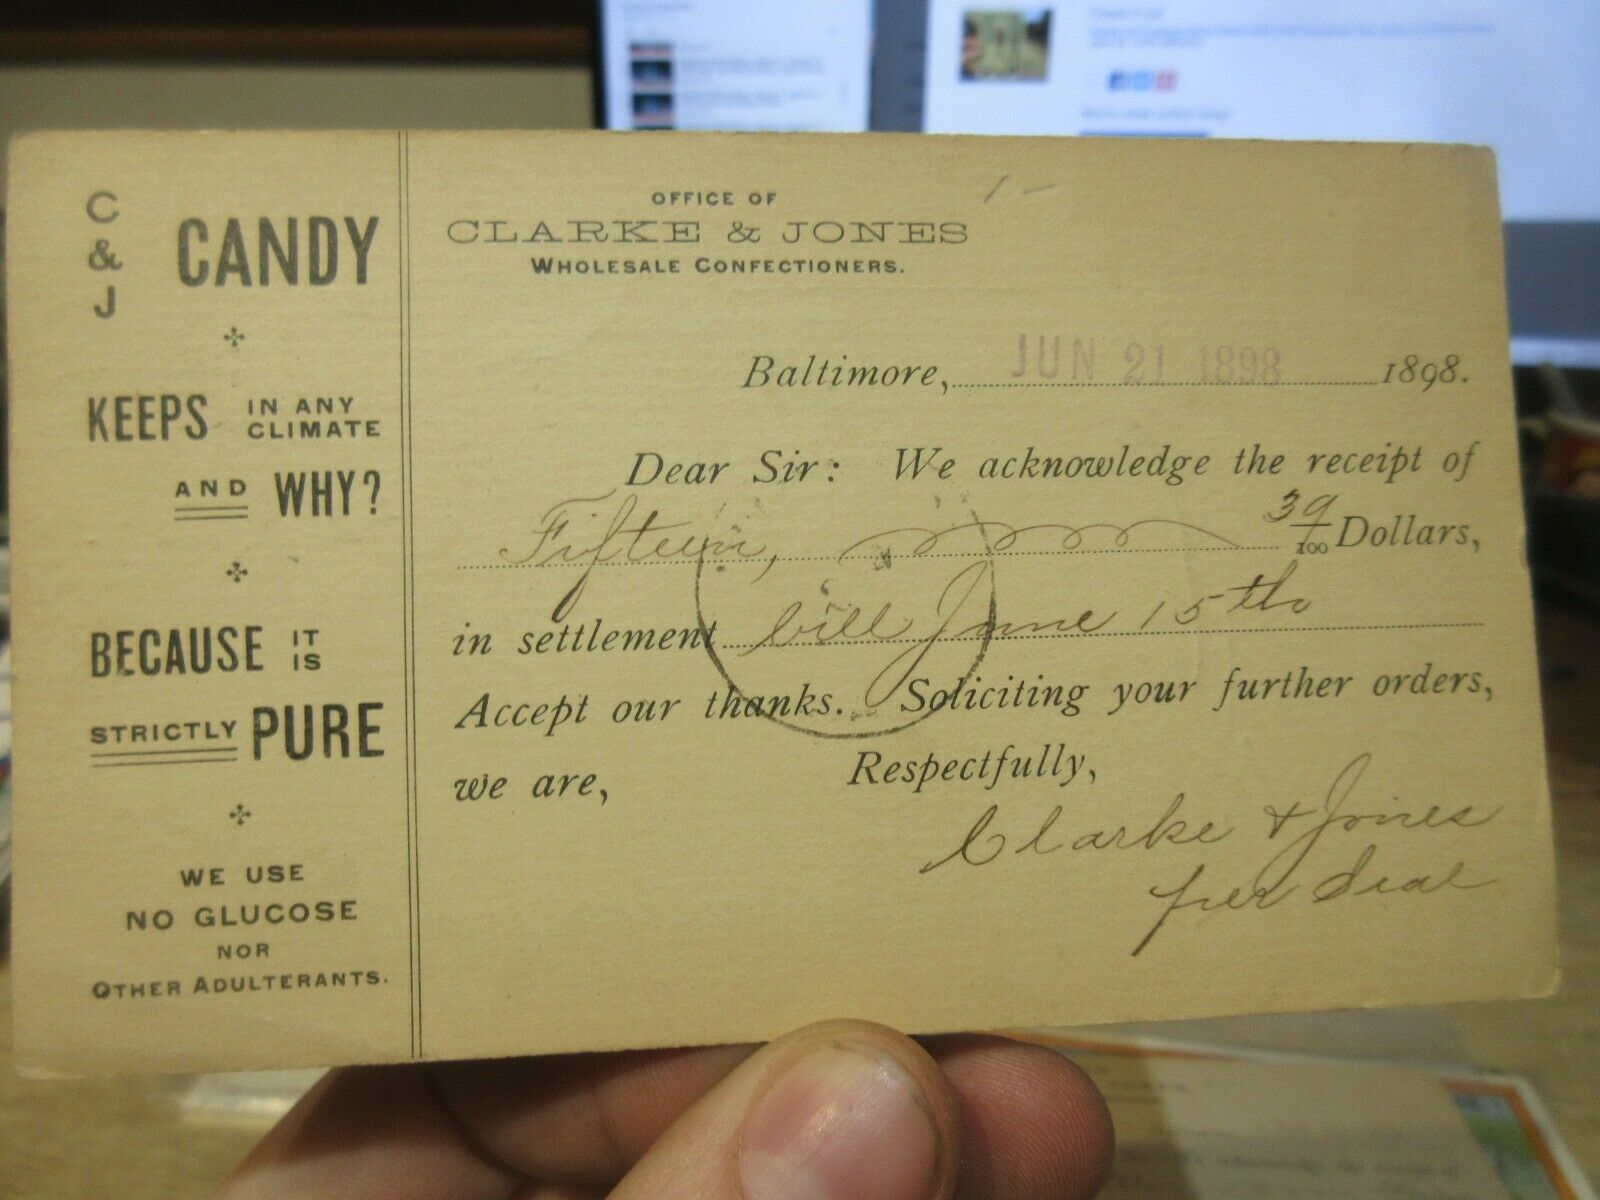 C & J CANDY
KEEPS IN ANY CLIMATE
AND WHY?
BECAUSE IT IS
STRICTLY PURE
WE USE
NO GLUCOSE
NOR
OTHER ADULTERANTS.
1-
OFFICE OF
CLARKE & JONES
WHOLESALE CONFECTIONERS.
Baltimore, JUN 21 1898 1898.
Dear Sir: We acknowledge the receipt of
Fifteen, 39/100 Dollars,
in settlement bill June 15th
Accept our thanks. Soliciting your further orders,
we are, Respectfully,
Clarke & Jones
per